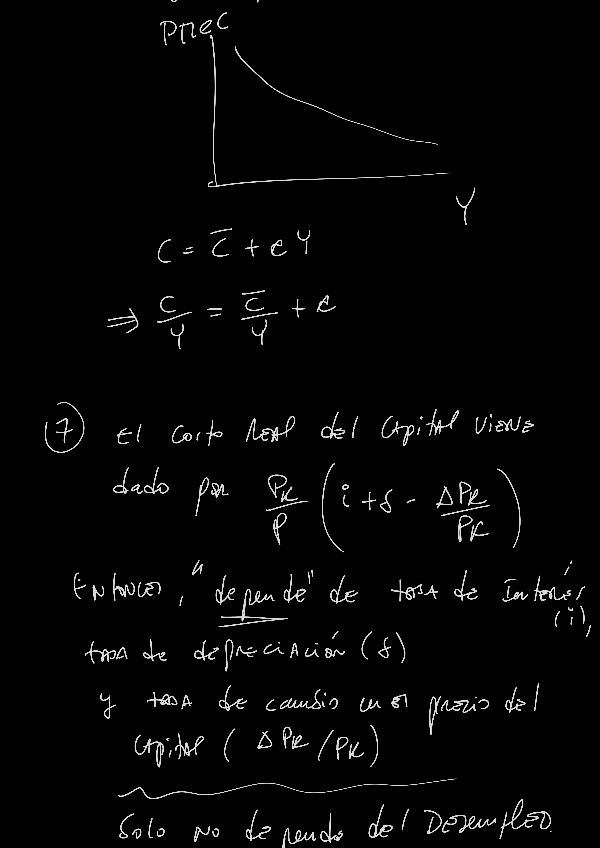 PMeC
Y
C = C̅ + cY
⇒ C/Y = C̅/Y + c
7 El costo real del capital viene
dado por PK/P (i + δ - ΔPK/PK)
Entonces, "depende" de tasa de interés (i),
tasa de depreciación (δ)
y tasa de cambio en el precio del
capital (ΔPK/PK)
Solo no depende del Desempleo.